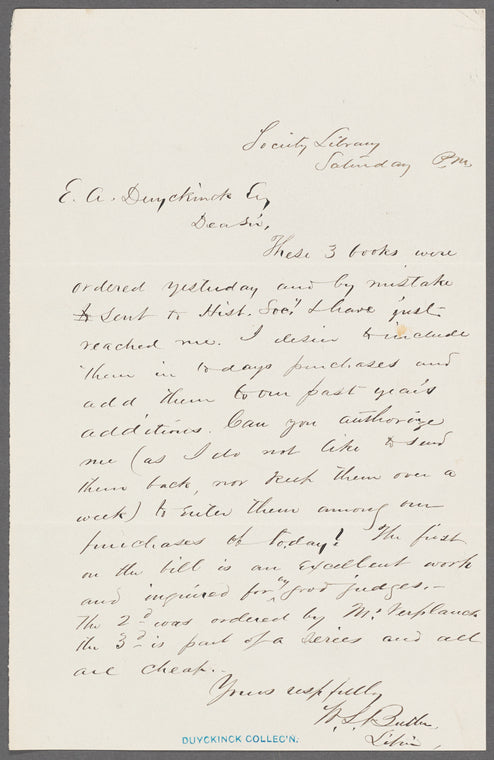 Society Library
Saturday P.M.
E. A. Duyckinck Esq
Dear Sir,
These 3 books were
ordered yesterday and by mistake
sent to Hist. Socy. & have just
reached me. I desire to include
them in to days purchases and
add them to our past year's
additions. Can you authorize
me (as I do not like to send
them back, nor keep them over a
week) to enter them among our
purchases of today? The first
on the bill is an excellent work
and inquired for by good judges.—
The 2d was ordered by Mr. Verplanck
the 3d is part of a series and all
are cheap.—
Yours respfully
W. S. Butler
Librn,
DUYCKINCK COLLEC'N.